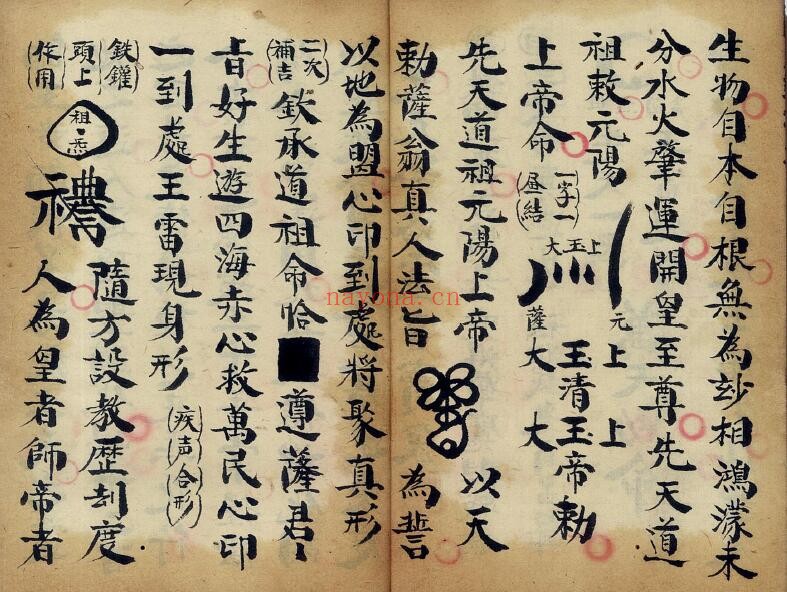 生物自本自根無為玅相鴻濛未
分水火肇運開皇至尊先天道
祖敕元陽
上帝命
一字一
晝結
大玉上
薩 元
大玉上
大清上
玉帝勅
先天道祖元陽上帝
以天
勅薩翁真人法旨
為誓
以地為盟心印到處將聚真形
二次補吉
欽承道祖命恰■遵薩君
旨好生遊四海赤心救萬民心印
一到處王雷現身形
疾声合形
鉄鑵
頭上
作用
祖炁
隨方設教歴刼度
人為皇者師帝者
nayona.cn